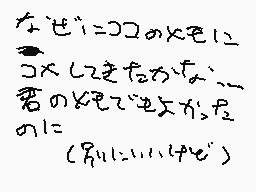 なぜにココのメモに
コメしてきたかな…
君のメモでもよかった
のに
(別にいいけど)